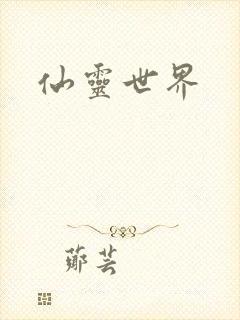 仙靈世界
鄭芸